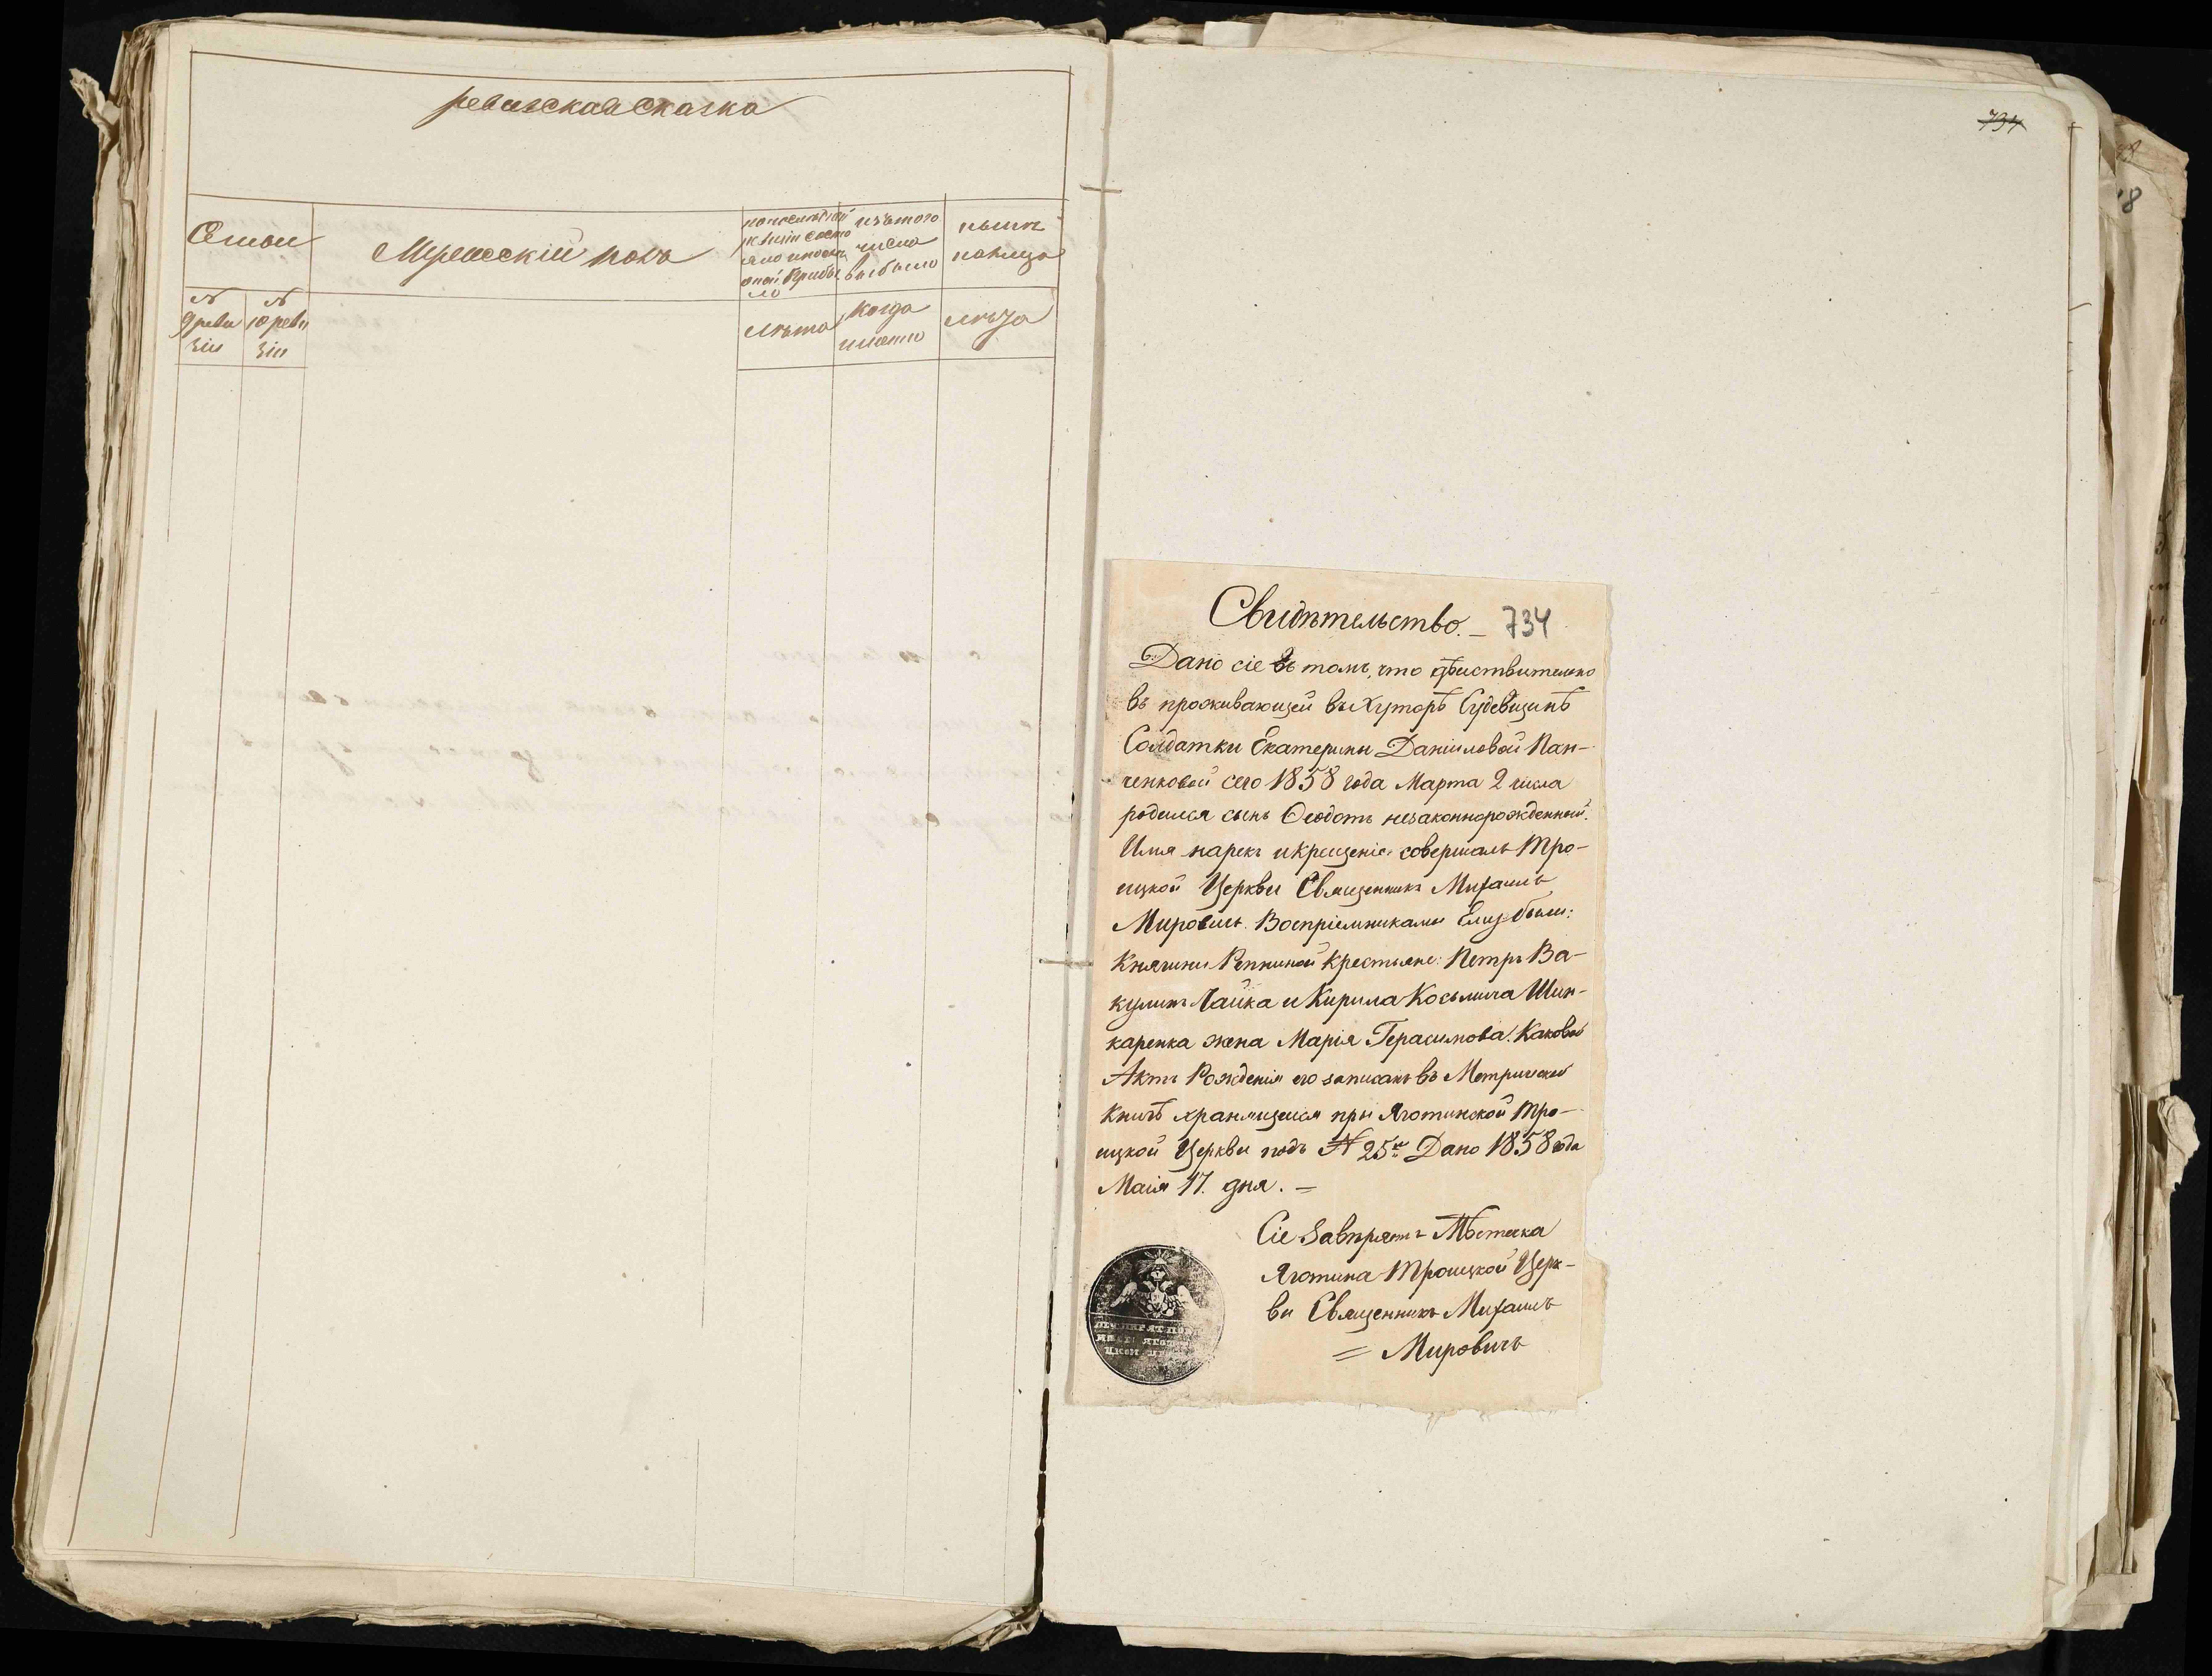 ревизская сказка
Семьи
Мужескій полъ
по последней
ревизіи состо
яло и после
оной прибы
ло
изътого
числа
выбыло
ныне
налицо
№
9 реви
зіи
№
10 реви
зіи
лѣта
когда
именно
лѣта
734
Свидѣтельство. – 734
Дано сіе въ томъ, что дѣйствительно
въ проживающей въ Хуторѣ Судевщинѣ
Солдатки Екатерины Даніиловой Пан-
ченковой сего 1858 года Марта 2 числа
родился сынъ Ѳеодотъ незаконнорожденный.
Имя нарекъ и крещеніе совершалъ Тро-
ицкой Церкви Священникъ Михаилъ
Мировичъ. Воспріемниками Ему были:
Княгини Репниной крестьяне: Петръ Ва-
кулинъ Чайка и Кирила Косьмича Шин-
каренка жена Марія Герасимова. Каковой
Актъ Рожденія его записанъ въ Метрической
Книгѣ хранящейся при Яготинской Тро-
ицкой Церкви подъ № 25мъ Дано 1858 года
Маія 17. дня. =
Сіе Завѣряетъ Мѣстечка
Яготина Троицкой Церк-
ви Священникъ Михаилъ
= Мировичъ